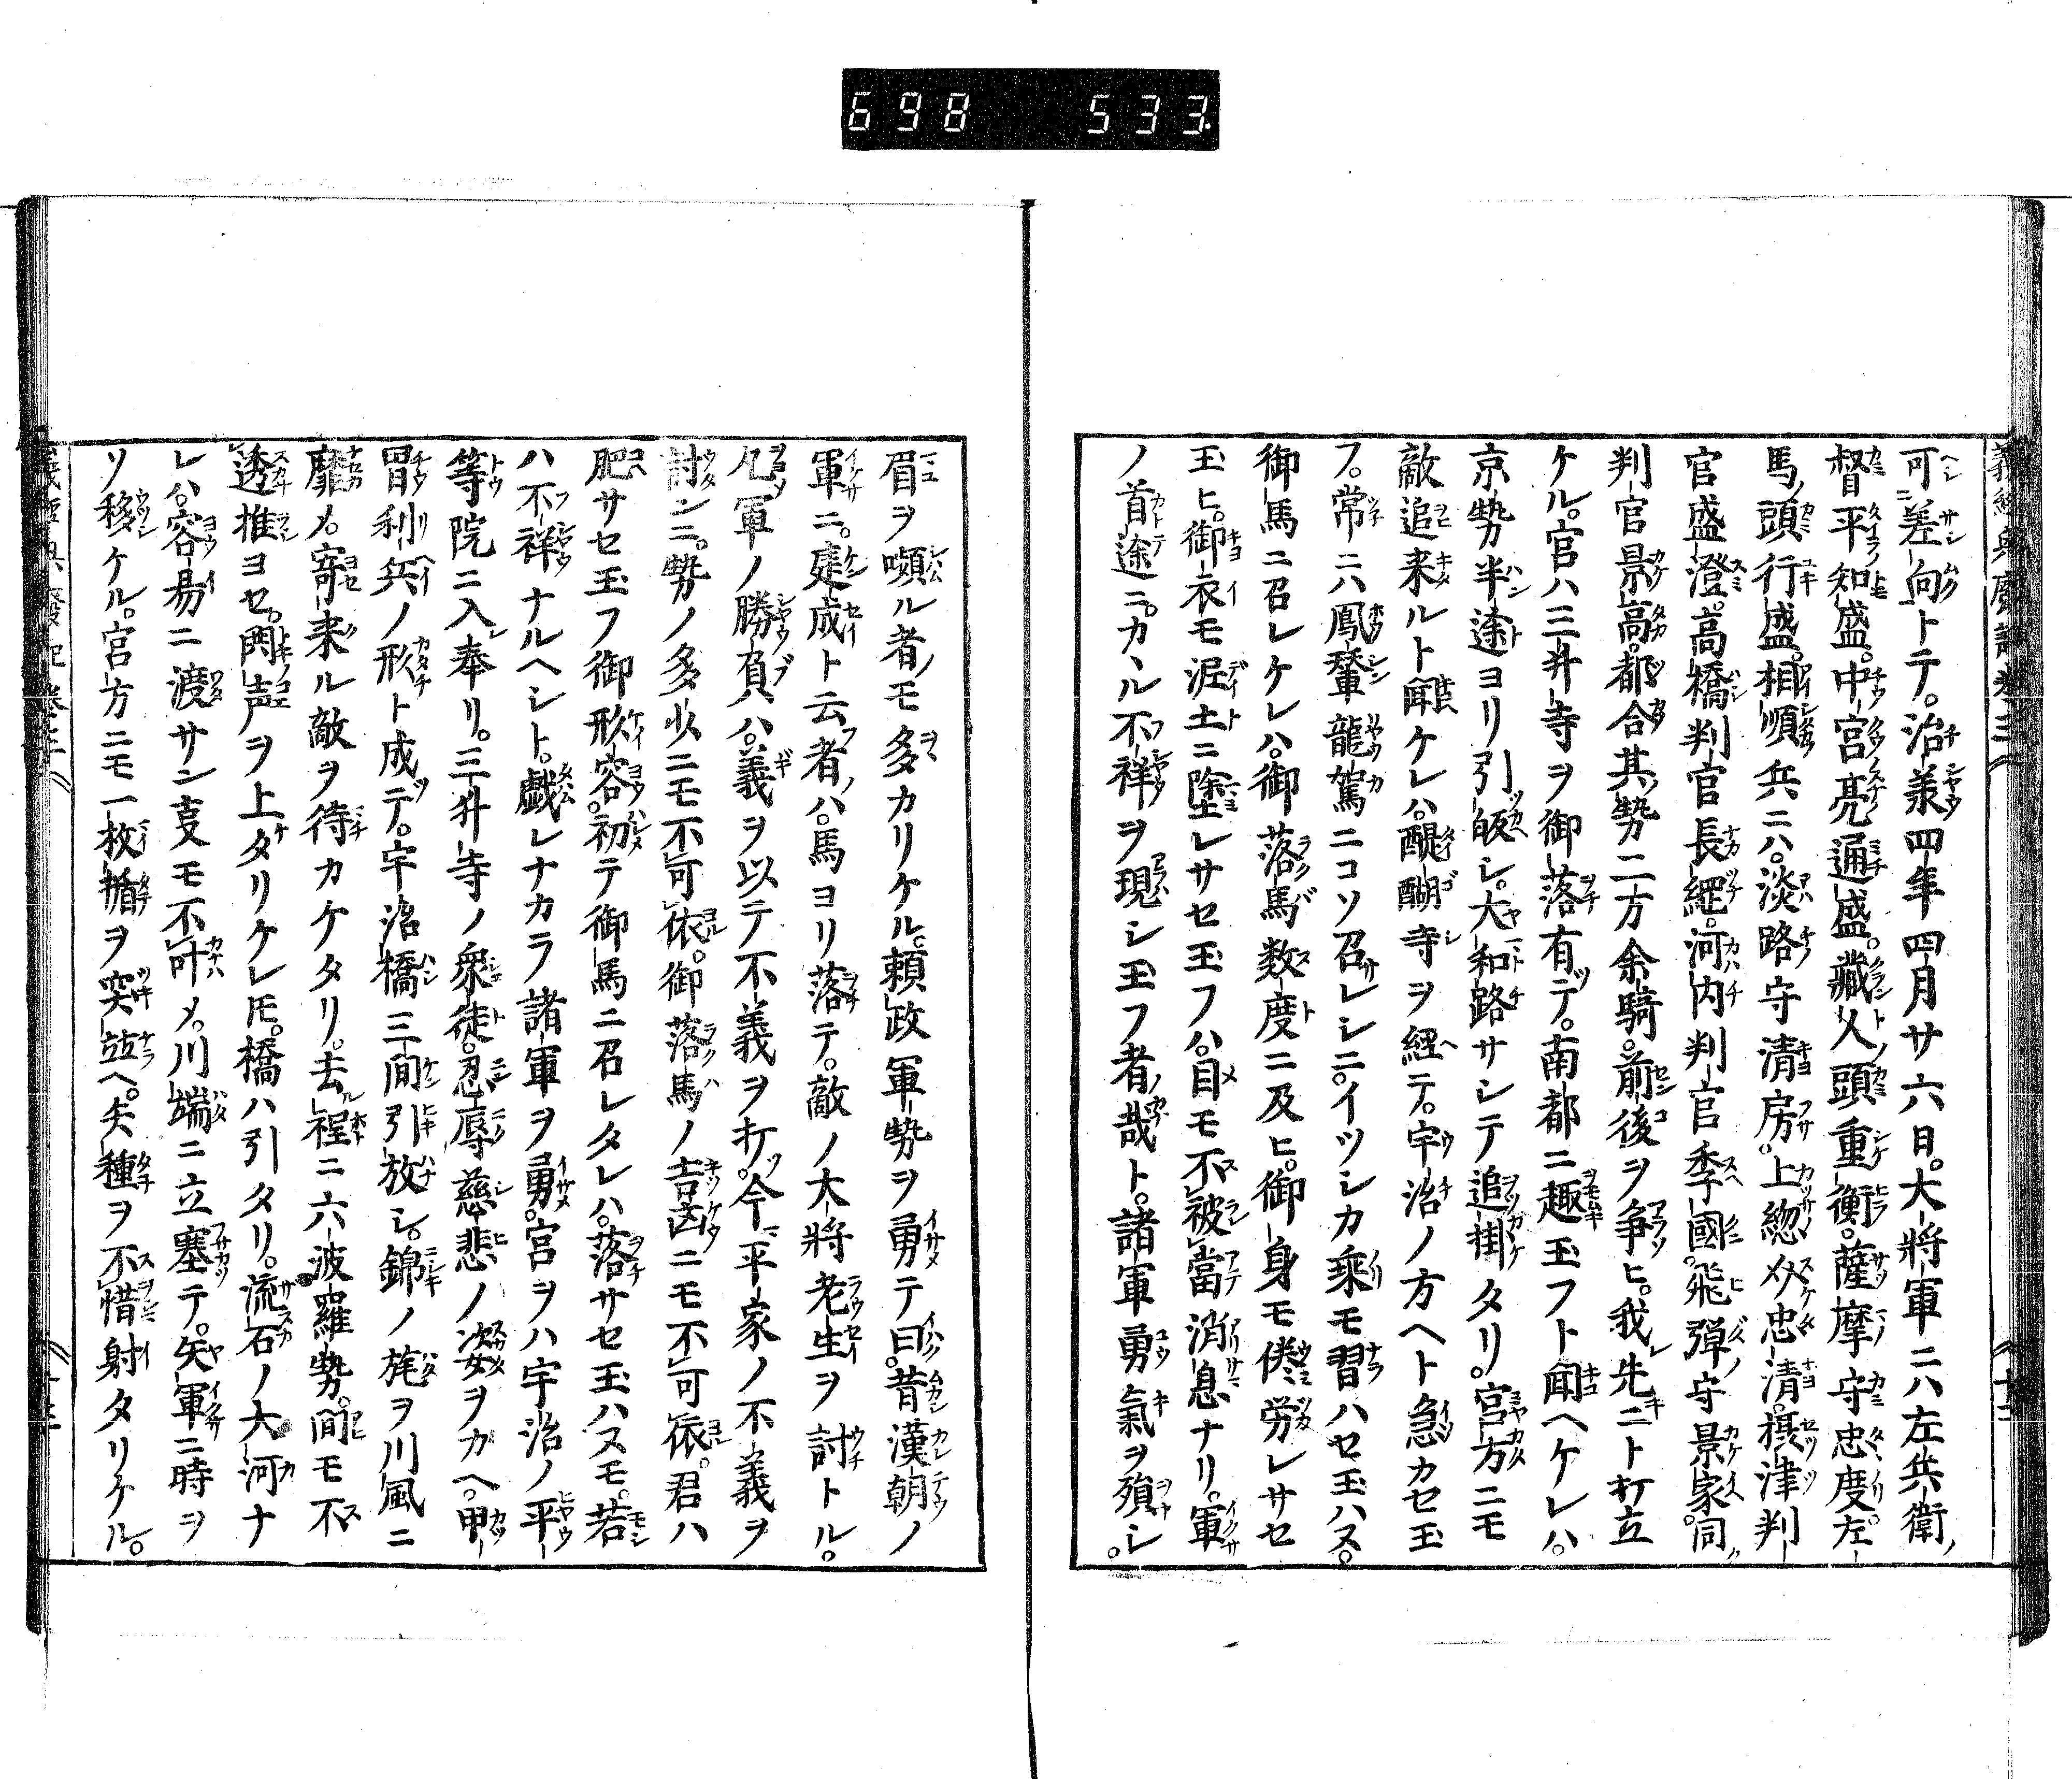 698 533.
義經興廢記卷三
可差向トテ。治羕四年四月廿六日。大將軍ニハ左兵衛ノ
督平知盛。中宮亮通盛。藏人頭重衡。薩摩守忠度。左
馬頭行盛。相順兵ニハ。淡路守清房。上総介忠清。摂津判
官盛澄。高橋判官長綱。河内判官季國。飛彈守景家。同
判官景高。都合其勢二万余騎。前後ヲ争ヒ。我先ニト打立
ケル。宮ハ三井寺ヲ御落有テ。南都ニ趣玉フト聞ヘケレハ。
京勢半途ヨリ引皈シ。大和路サシテ追掛タリ。宮方ニモ
敵追来ルト聞ケレハ。醍醐寺ヲ經テ。宇治ノ方ヘト急カセ玉
フ。常ニハ鳳輦龍駕ニコソ召レシニ。イツシカ乗モ習ハセ玉ハス。
御馬ニ召レケレハ。御落馬数度ニ及ヒ。御身モ倦労レサセ
玉ヒ。御衣モ泥土ニ塗レサセ玉フハ。目モ不被當消息ナリ。軍
ノ首途ニ。カヽル不祥ヲ現シ玉フ者哉ト。諸軍勇氣ヲ殞シ。
眉ヲ嚬ル者モ多カリケル。頼政軍勢ヲ勇テ曰。昔漢朝ノ
軍ニ。建成ト云者ハ。馬ヨリ落テ。敵ノ大將老生ヲ討トル。
凡軍ノ勝負ハ。義ヲ以テ不義ヲ打。今平家ノ不義ヲ
討ンニ。勢ノ多少ニモ不可依。御落馬ノ吉凶ニモ不可依。君ハ
肥サセ玉フ御形容。初テ御馬ニ召レタレハ。落サセ玉ハスモ。若
ハ不祥ナルヘシト。戯レナカラ諸軍ヲ勇。宮ヲハ宇治ノ平
等院ニ入奉リ。三井寺ノ衆徒。忍辱慈悲ノ姿ヲカヘ。甲
冑利兵ノ形ト成テ。宇治橋三間引放シ。錦ノ旄ヲ川風ニ
靡メ。寄来ル敵ヲ待カケタリ。去程ニ六波羅勢。間モ不
透推ヨセ。鬨声ヲ上タリケレ𪜈。橋ハ引タリ。流石ノ大河ナ
レハ。容易ニ渡サン叓モ不叶メ。川端ニ立塞テ。矢軍ニ時ヲ
ソ移ケル。宮方ニモ一枚楯ヲ突竝ヘ。矢種ヲ不惜射タリケル。
義經興廢記卷三